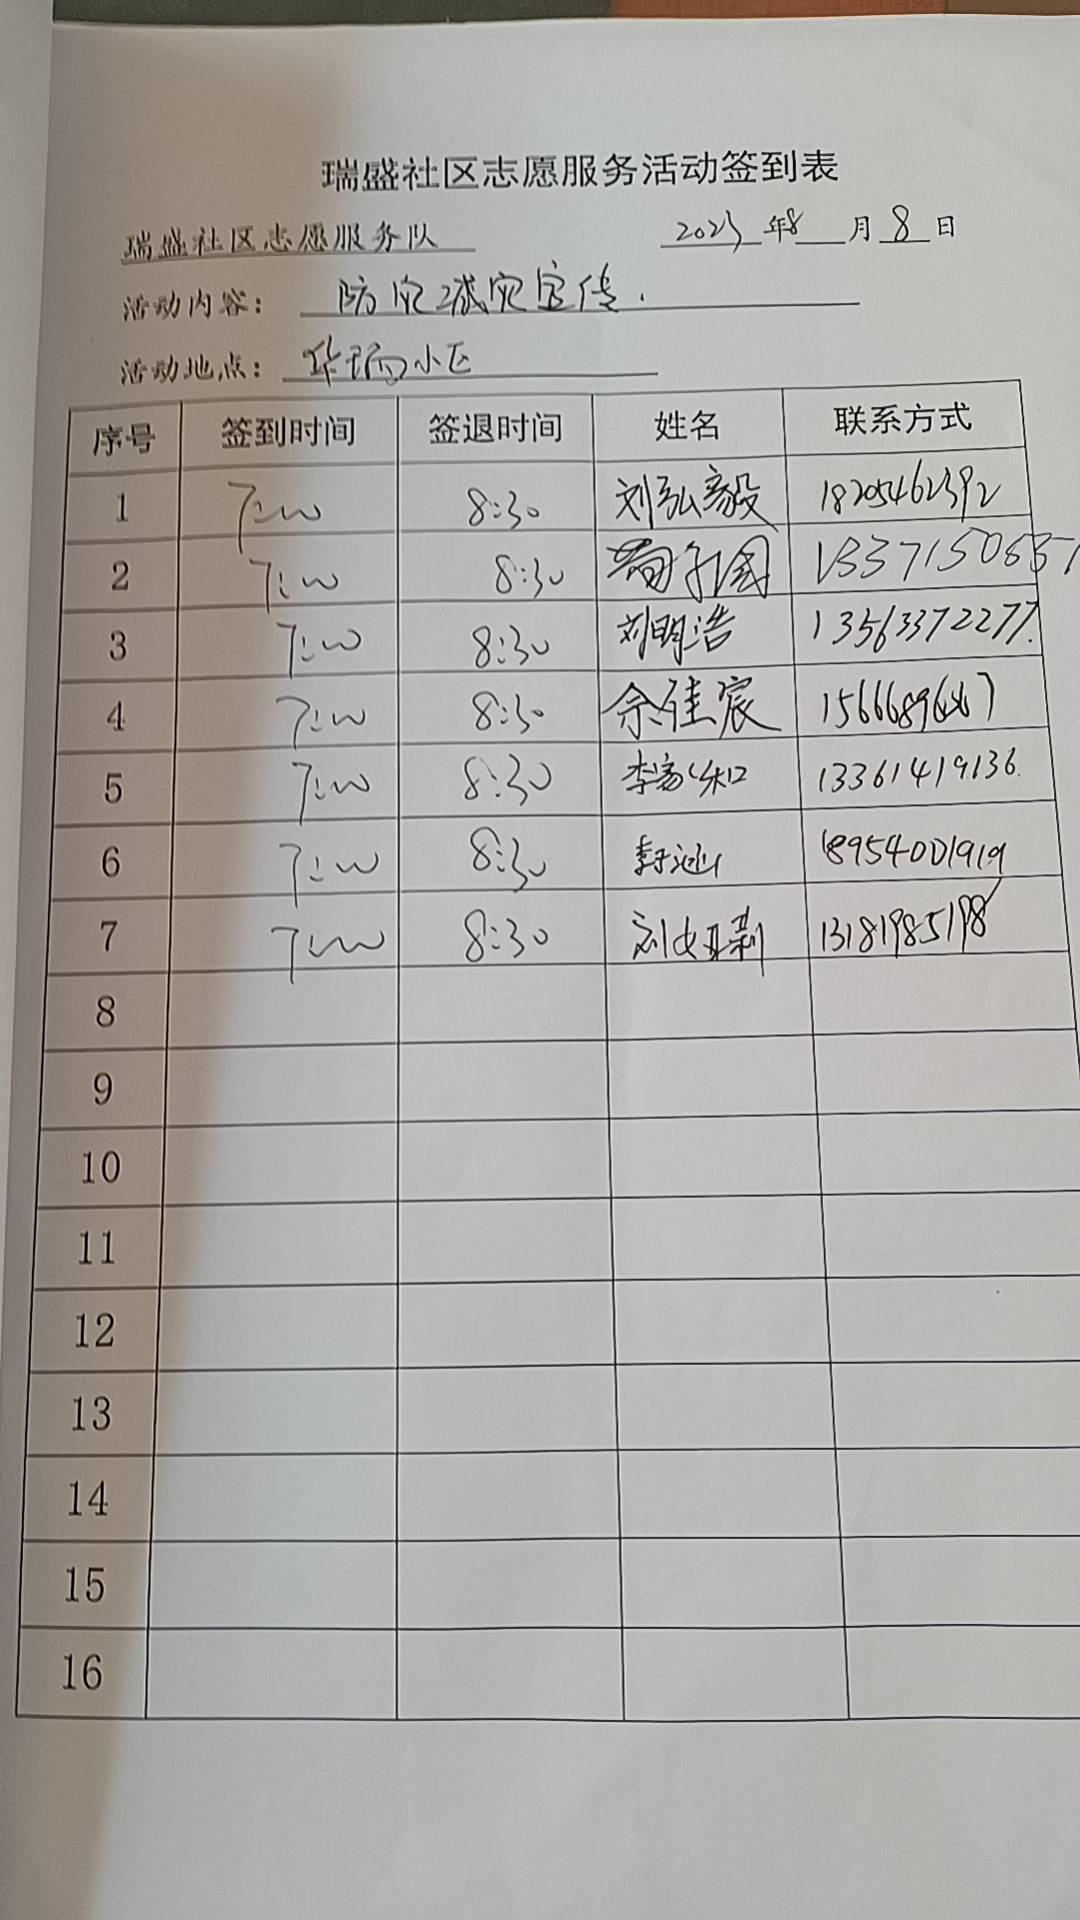 瑞盛社区志愿服务活动签到表
瑞盛社区志愿服务队 2023年8月8日
活动内容： 防灾减灾宣传.
活动地点： 华瑞小区
序号 签到时间 签退时间 姓名 联系方式
1 7:00 8:30 刘弘毅 18205462392
2 7:00 8:30
3 7:00 8:30 刘明浩 13563372277.
4 7:00 8:30 佘佳宸
5 7:00 8:30 13361419136.
6 7:00 8:30 18954001919
7 7:00 8:30 13181985198
8
9
10
11
12
13
14
15
16